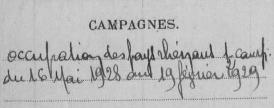 CAMPAGNES.
occupation des pays rhénans 1 camp.
du 16 Mai 1928 au 19 février 1929